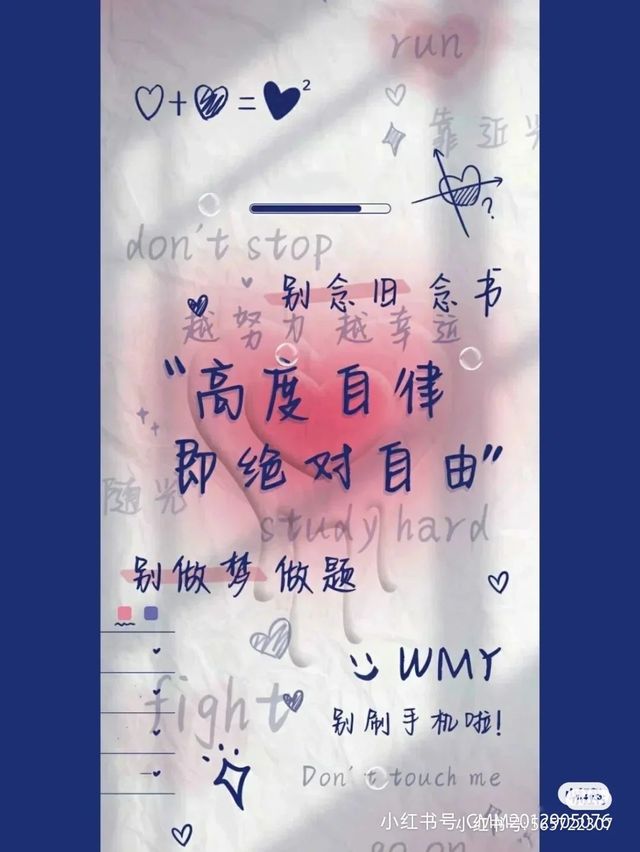 run
靠近光
2
?
don't stop
别念旧 念书
越努力 越幸运
“高度自律
即绝对自由”
随光
study hard
别做梦 做题
WMY
fight
别刷手机啦!
Don't touch me
go on